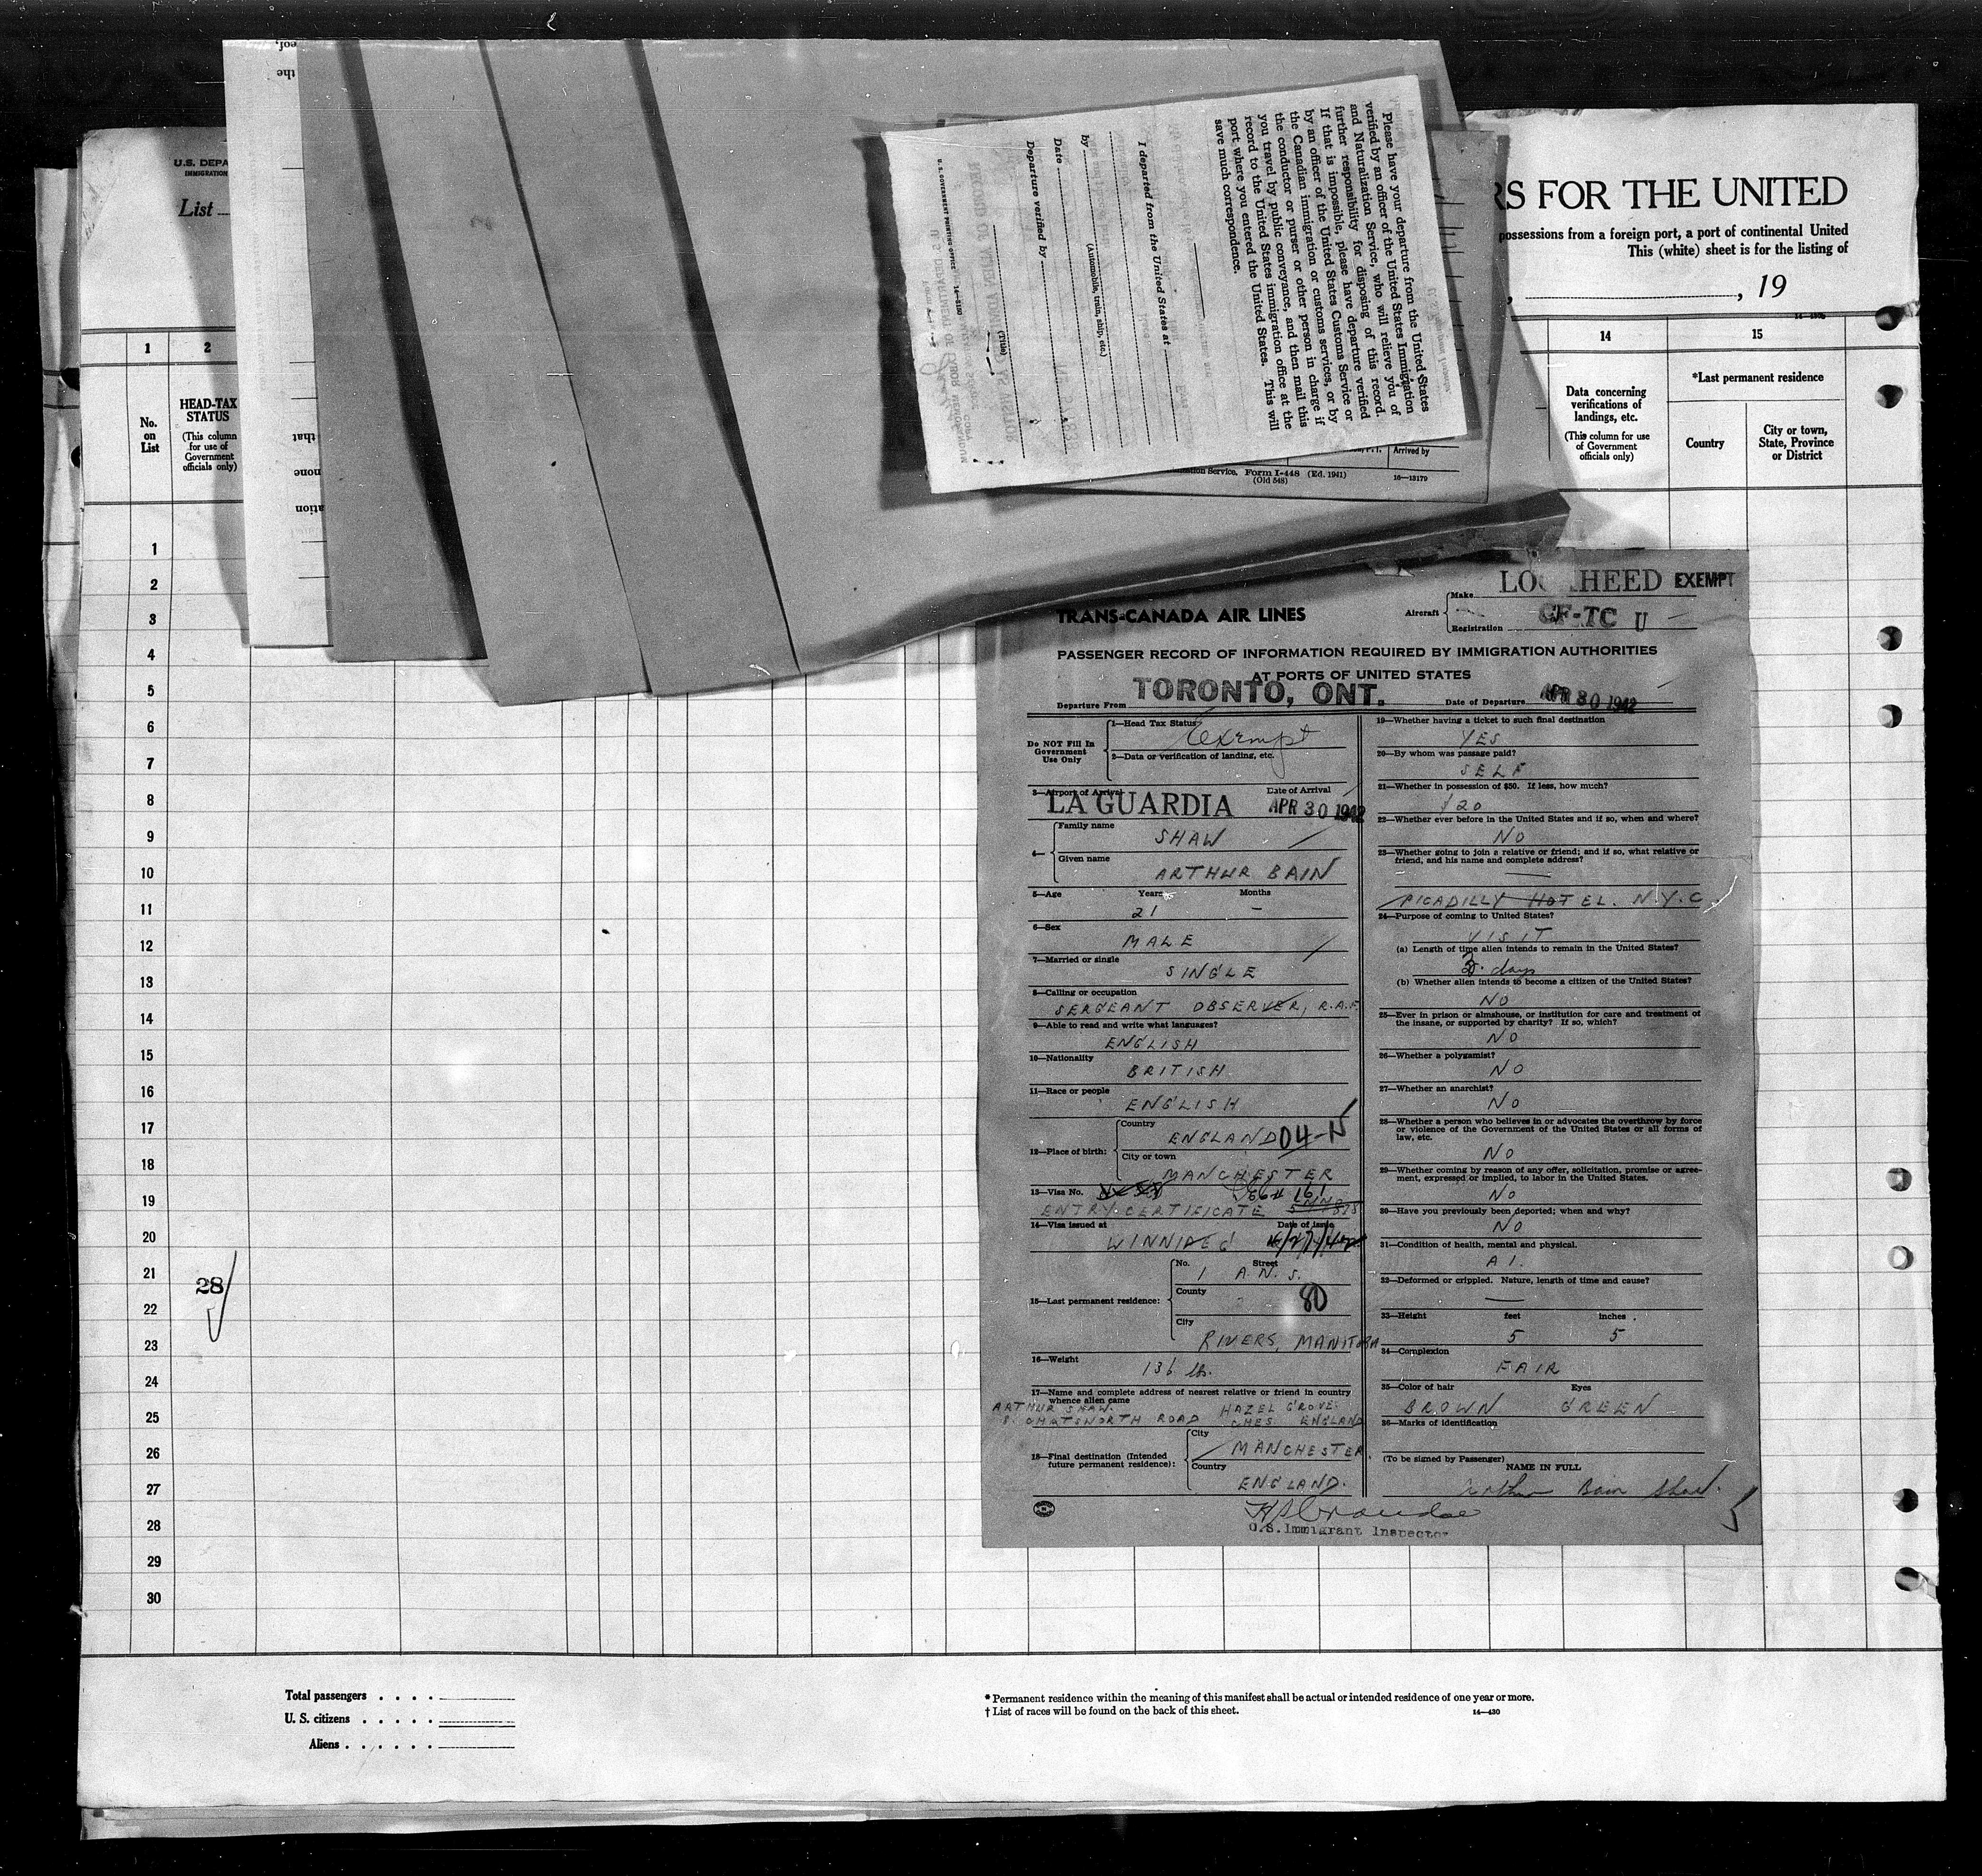 U.S. DEPA
IMMIGRATION
List
RS FOR THE UNITED
possessions from a foreign port, a port of continental United
This (white) sheet is for the listing of
, 19
1
2
14
15
No.
on
List
HEAD-TAX
STATUS
(This column
for use of
Government
officials only)
Data concerning
verifications of
landings, etc.
(This column for use
of Government
officials only)
*Last permanent residence
Country
City or town,
State, Province
or District
eof,
the
that
none
ation
Please have your departure from the United States
verified by an officer of the United States Immigration
and Naturalization Service, who will relieve you of
further responsibility for disposing of this record.
If that is impossible, please have departure verified
by an officer of the United States Customs Service or
the Canadian immigration or customs services, or by
the conductor or purser or other person in charge if
you travel by public conveyance, and then mail this
record to the United States immigration office at the
port where you entered the United States. This will
save much correspondence.
I departed from the United States at
by
(Automobile, train, ship, etc.)
Date
Departure verified by
(Title)
U. S. GOVERNMENT PRINTING OFFICE 14-2100
Arrived by
Service. Form I-448 (Ed. 1941)
(Old 548)
16-13179
1
2
3
4
5
6
7
8
9
10
11
12
13
14
15
16
17
18
19
20
21
22
23
24
25
26
27
28
29
30
28
TRANS-CANADA AIR LINES
Aircraft
Make LOCKHEED EXEMPT
Registration CF-TC U
PASSENGER RECORD OF INFORMATION REQUIRED BY IMMIGRATION AUTHORITIES
AT PORTS OF UNITED STATES
Departure From TORONTO, ONT. Date of Departure APR 30 1942
Do NOT Fill In
Government
Use Only
1—Head Tax Status
Exempt
2—Data or verification of landing, etc.
3—Airport of Arrival Date of Arrival
LA GUARDIA APR 30 1942
4—
Family name
SHAW
Given name
ARTHUR BAIN
5—Age Years Months
21 —
6—Sex
MALE
7—Married or single
SINGLE
8—Calling or occupation
SERGEANT OBSERVER, R.A.F.
9—Able to read and write what languages?
ENGLISH
10—Nationality
BRITISH
11—Race or people
ENGLISH
12—Place of birth:
Country
ENGLAND 04-
City or town
MANCHESTER
13—Visa No.
161
ENTRY CERTIFICATE
14—Visa issued at Date of issue
WINNIPEG
15—Last permanent residence:
No. Street
1 A.N.S.
County
80
City
RIVERS, MANITOBA
16—Weight
136 lb.
17—Name and complete address of nearest relative or friend in country
whence alien came
ARTHUR SHAW. HAZEL GROVE.
CHATSWORTH ROAD CHES. ENGLAND
18—Final destination (Intended
future permanent residence):
City
MANCHESTER
Country
ENGLAND.
U.S. Immigrant Inspector
19—Whether having a ticket to such final destination
YES
20—By whom was passage paid?
SELF
21—Whether in possession of $50. If less, how much?
$20
22—Whether ever before in the United States and if so, when and where?
NO
23—Whether going to join a relative or friend; and if so, what relative or
friend, and his name and complete address?
PICADILLY HOTEL. N.Y.C
24—Purpose of coming to United States?
VISIT
(a) Length of time alien intends to remain in the United States?
3 days
(b) Whether alien intends to become a citizen of the United States?
NO
25—Ever in prison or almshouse, or institution for care and treatment of
the insane, or supported by charity? If so, which?
NO
26—Whether a polygamist?
NO
27—Whether an anarchist?
NO
28—Whether a person who believes in or advocates the overthrow by force
or violence of the Government of the United States or all forms of
law, etc.
NO
29—Whether coming by reason of any offer, solicitation, promise or agree-
ment, expressed or implied, to labor in the United States.
NO
30—Have you previously been deported; when and why?
NO
31—Condition of health, mental and physical.
A1.
32—Deformed or crippled. Nature, length of time and cause?
—
33—Height feet inches
5 5
34—Complexion
FAIR
35—Color of hair Eyes
BROWN GREEN
36—Marks of identification
(To be signed by Passenger)
NAME IN FULL
Arthur Bain Shaw.
Total passengers . . . .
U. S. citizens . . . . .
Aliens . . . . . .
* Permanent residence within the meaning of this manifest shall be actual or intended residence of one year or more.
† List of races will be found on the back of this sheet.
14—430